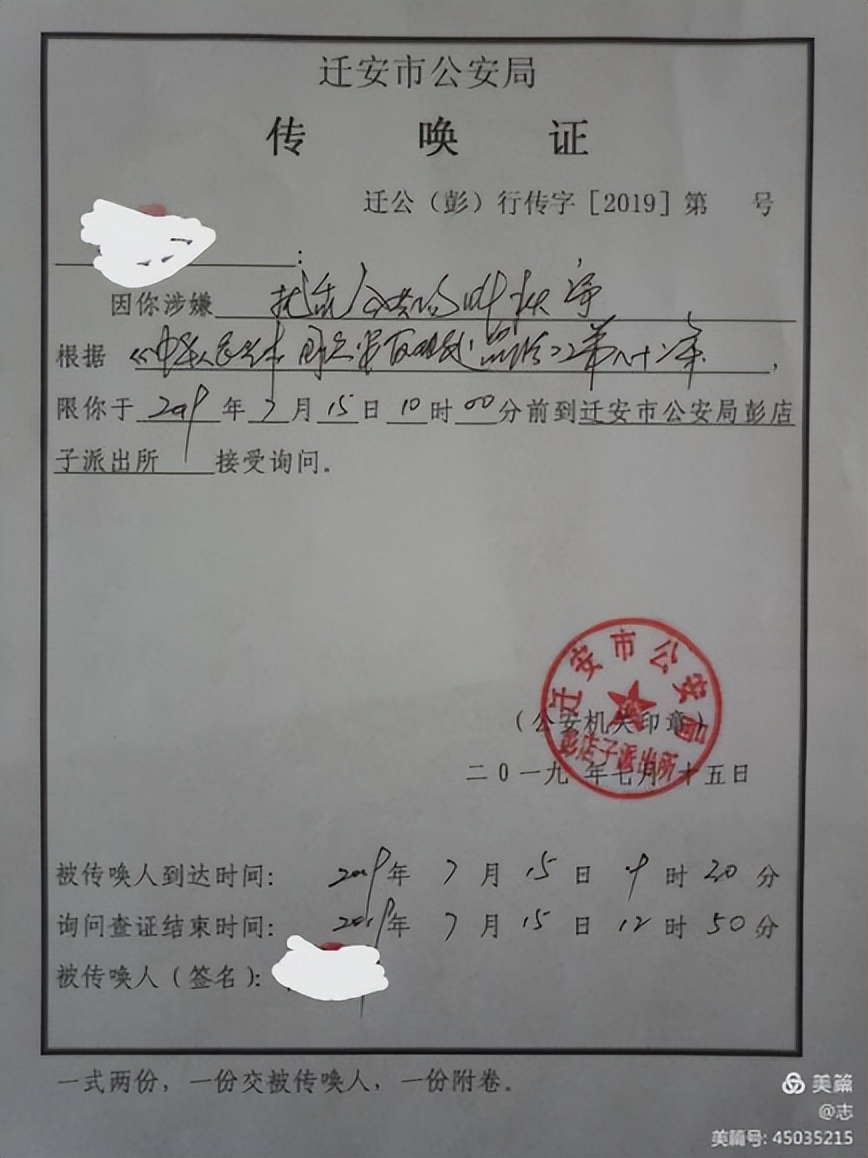 迁安市公安局
传 唤 证
迁公（彭）行传字［2019］第 号
：
因你涉嫌扰乱公共场所秩序
根据《中华人民共和国治安管理处罚法》第八十二条，
限你于2019年7月15日10时00分前到迁安市公安局彭店
子派出所 接受询问。
迁安市公安局
彭店子派出所
（公安机关印章）
二0一九年七月十五日
被传唤人到达时间： 2019年 7月 15日 9时 20分
询问查证结束时间： 2019年 7月 15日 12时 50分
被传唤人（签名）：
一式两份，一份交被传唤人，一份附卷。
美篇
@志
美篇号: 45035215